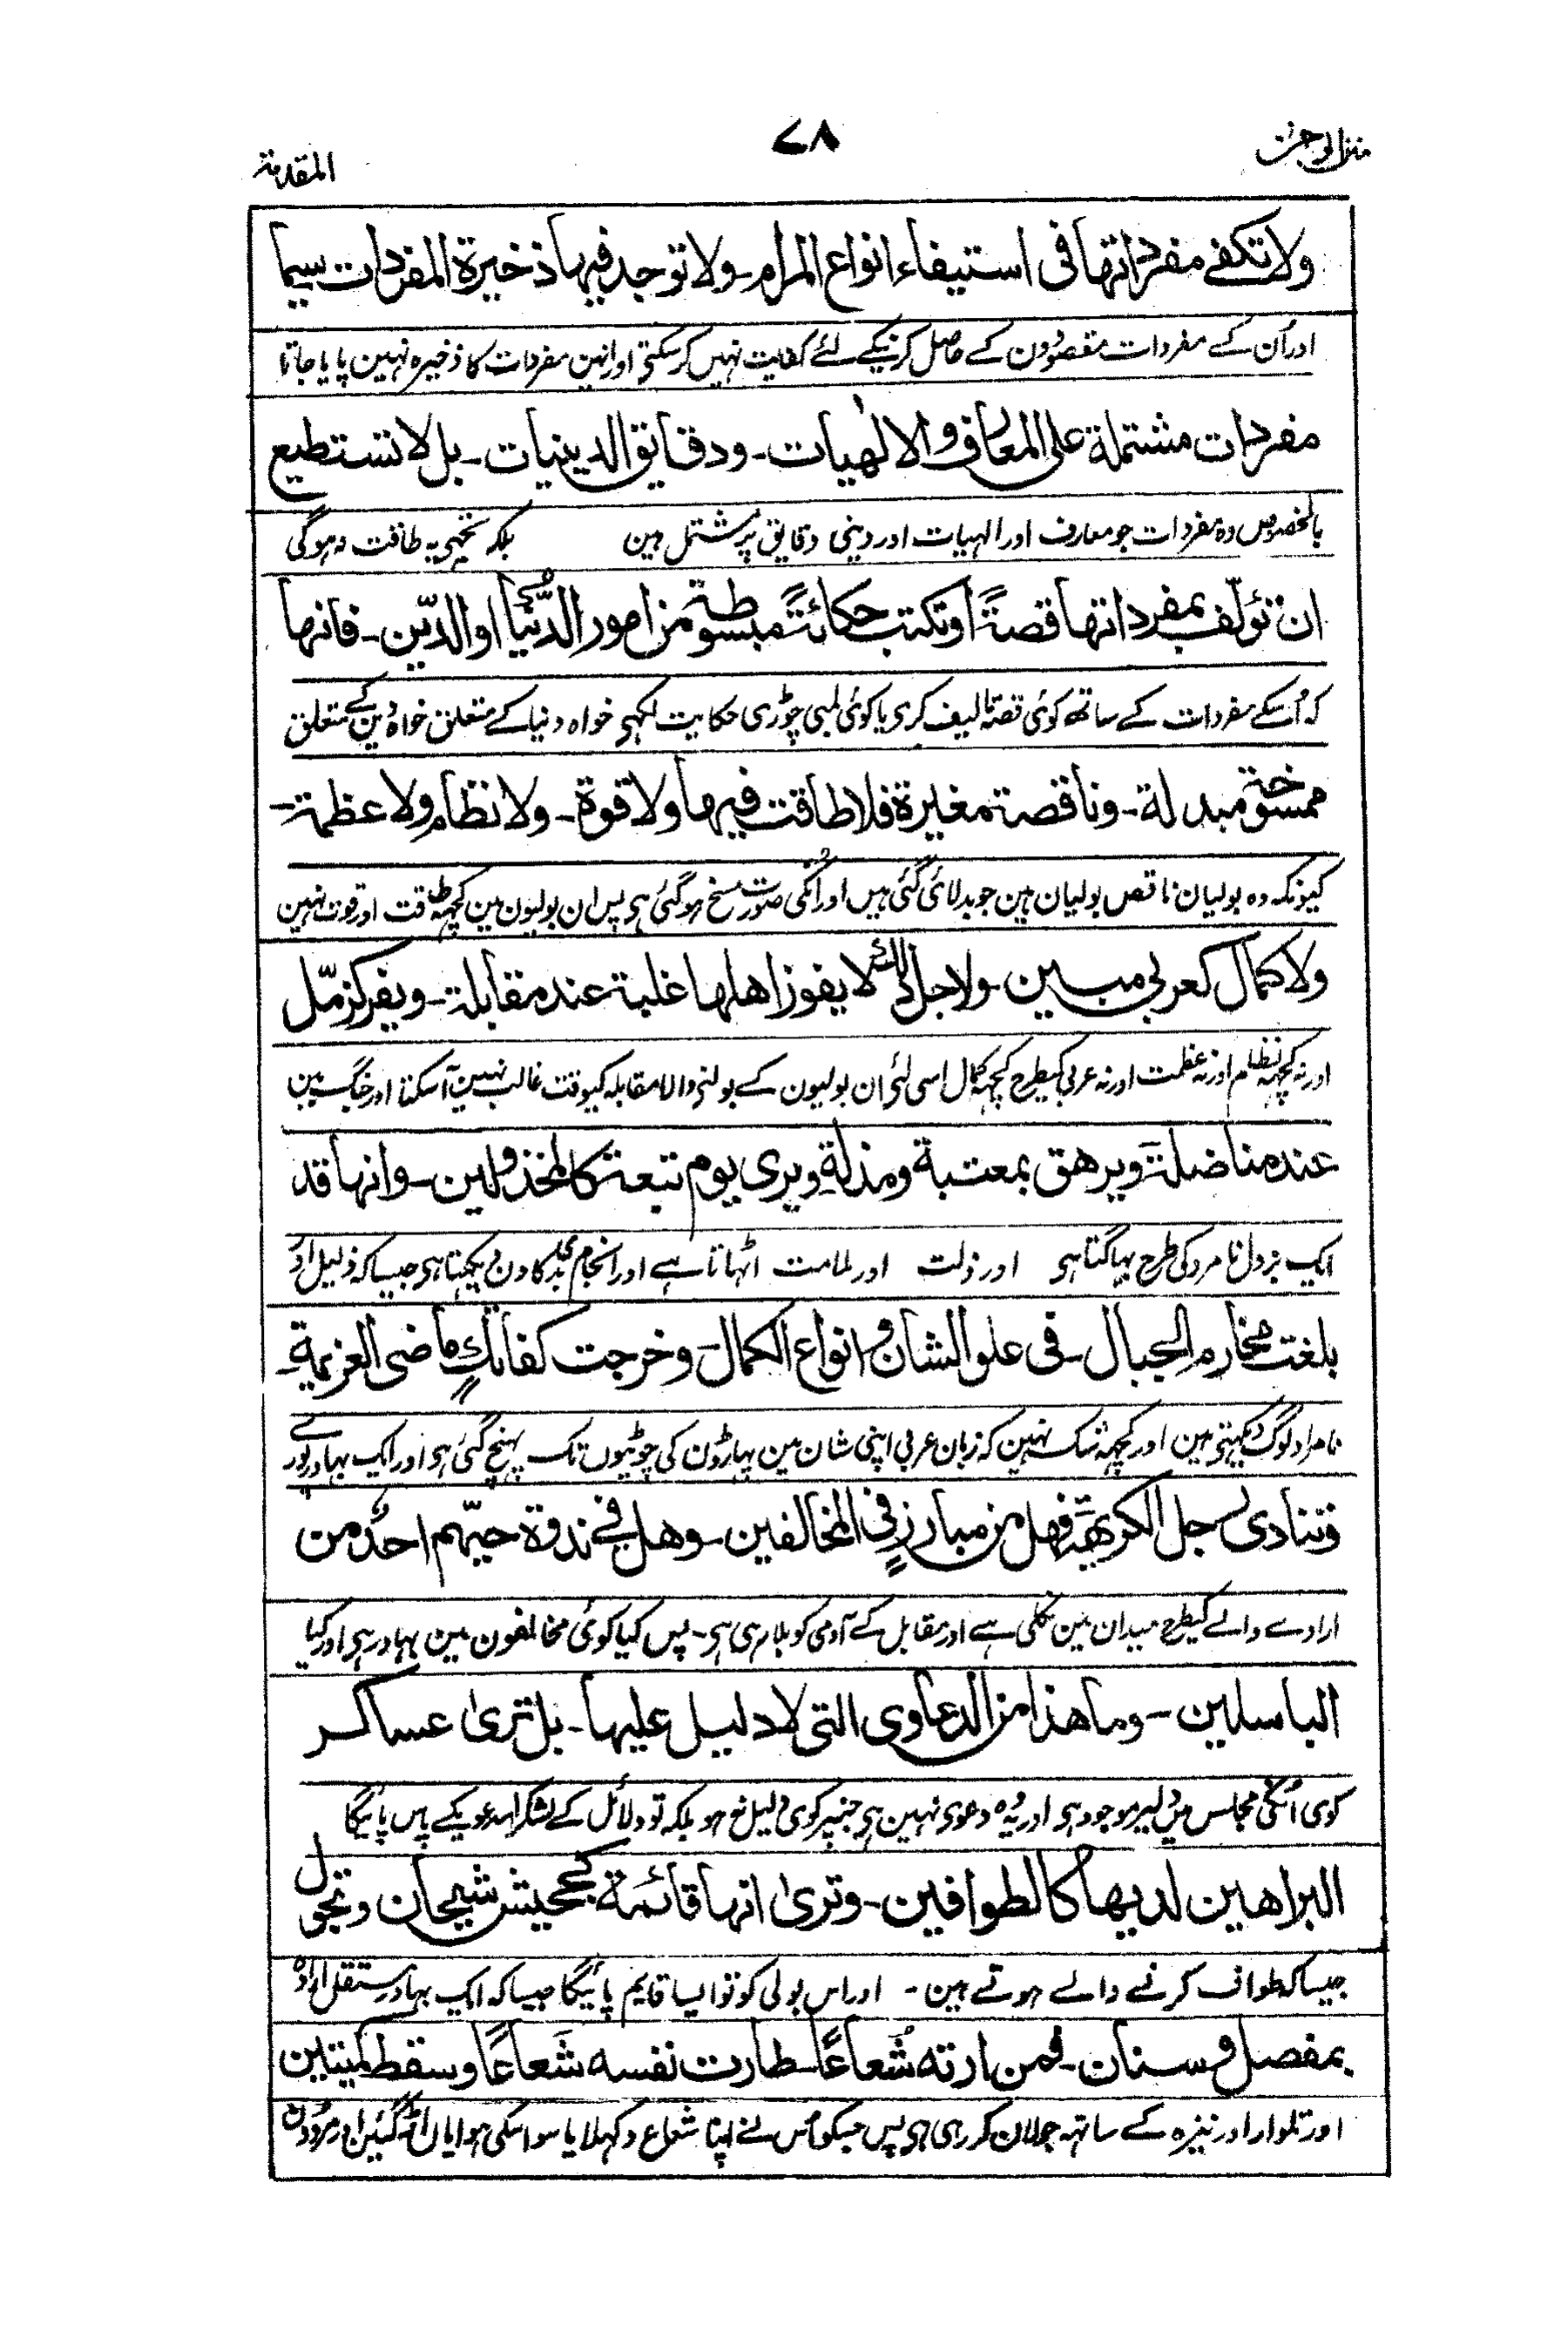 منن الرحمن
۷۸
المقدمة
ولا تكفے مفرداتها فی استیفاء انواع المرام۔ ولا توجد فیها ذخیرة المفردات سیما
اور اُن کے مفردات مقصودون کے حاصل کرنیکے لئے کفایت نہیں کرسکتی اور انمین مفردات کا ذخیرہ نہین پایا جاتا
مفردات مشتملة علی المعارف والالٰهیات۔ ودقایق الدینیات۔ بل لا تستطیع
بالخصوص وہ مفردات جو معارف اور الہیات اور دینی دقایق پر مشتمل ہین بلکہ تجھے یہ طاقت نہ ہوگی
ان تؤلّف بمفرداتها قصةً او تكتب حكائتًہ مبسوطة من امور الدُّنْیا او الدّین۔ فانها
کہ اُسکے مفردات کے ساتھ کوئی قصہ تالیف کری یا کوئی لمبی چوڑی حکایت لکہی خواہ دنیا کے متعلق خواہ دین کے متعلق
ممسوخة مبدلة۔ وناقصة مغیرة فلا طاقت فیها ولا قوة۔ ولا نظام ولا عظمة۔
کیونکہ وہ بولیان ناقص بولیان ہین جو بدلائی گئی ہیں اور اُنکی صورت مسخ ہوگئی ہی پس ان بولیون مین کچہہ طاقت اور قوت نہین
ولا كمال كعربی مبین۔ ولاجل ذلك لا یفوز اهلها غلبة عند مقابلة۔ ویفر كزمّل
اور نہ کچہہ نظام اور نہ عظمت اور نہ عربی کیطرح کچہہ کمال اسی لئی ان بولیون کے بولنے والا مقابلہ کیوقت غالب نہین آسکتا اور جنگ مین
عند مناضلة ویرهق بمعتبة ومذلة ویری یوم تبعة كالمخذولین۔ وانها قد
ایک بزدل نامرد کی طرح بہاگتا ہی اور ذلت اور ملامت اٹھاتا ہے اور انجام بد کا دن دیکہتا ہی جیسا کہ ذلیل اور
بلغت مخارم الجبال۔ فی علو الشان وانواع الكمال۔ وخرجت كفاتكٍ ماضی العزیمة۔
نامراد لوگ دیکہتی ہین اور کچہہ شک نہین کہ زبان عربی اپنی شان مین پہاڑون کی چوٹیوں تک پہنچ گئی ہی اور ایک بہادر پورے
وتنادی لرجل الكریهة فهل من مبارزٍ فی المخالفین۔ وهل فی ندوة حیّهم احدٌ من
ارادے والے کیطرح میدان مین نکلی ہے اور مقابل کے آدمی کو بلا رہی ہی۔ پس کیا کوئی مخالفون مین بہادر ہی اور کیا
الباسلین۔ وما هذا من الدعاوی التی لا دلیل علیها۔ بل تریٰ عساكر
کوی اُنکی مجالس مین دلیر موجود ہی اور یہ وہ دعوی نہین ہی جسپر کوی دلیل نہو بلکہ تو دلائل کے لشکر اس دعویکے پاس پائیگا
البراهین لدیها كالطوافین۔ وتریٰ انها قائمة كجحیش شیحان وتجول
جیسا کہ طواف کرنے والے ہوتے ہین۔ اور اس بولی کو تو ایسا قایم پائیگا جیسا کہ ایک بہادر مستقل ارادہ
بمفصل وسنان۔ فمن ارته شُعاعًا۔ طارت نفسه شَعاعًا وسقط كمیتین
اور تلوار اور نیزہ کے ساتہہ جولان کر رہی ہی پس جسکو اُس نے اپنا شعاع دکہلایا سو اسکی ہوایاں اُڑ گئین اور مردون